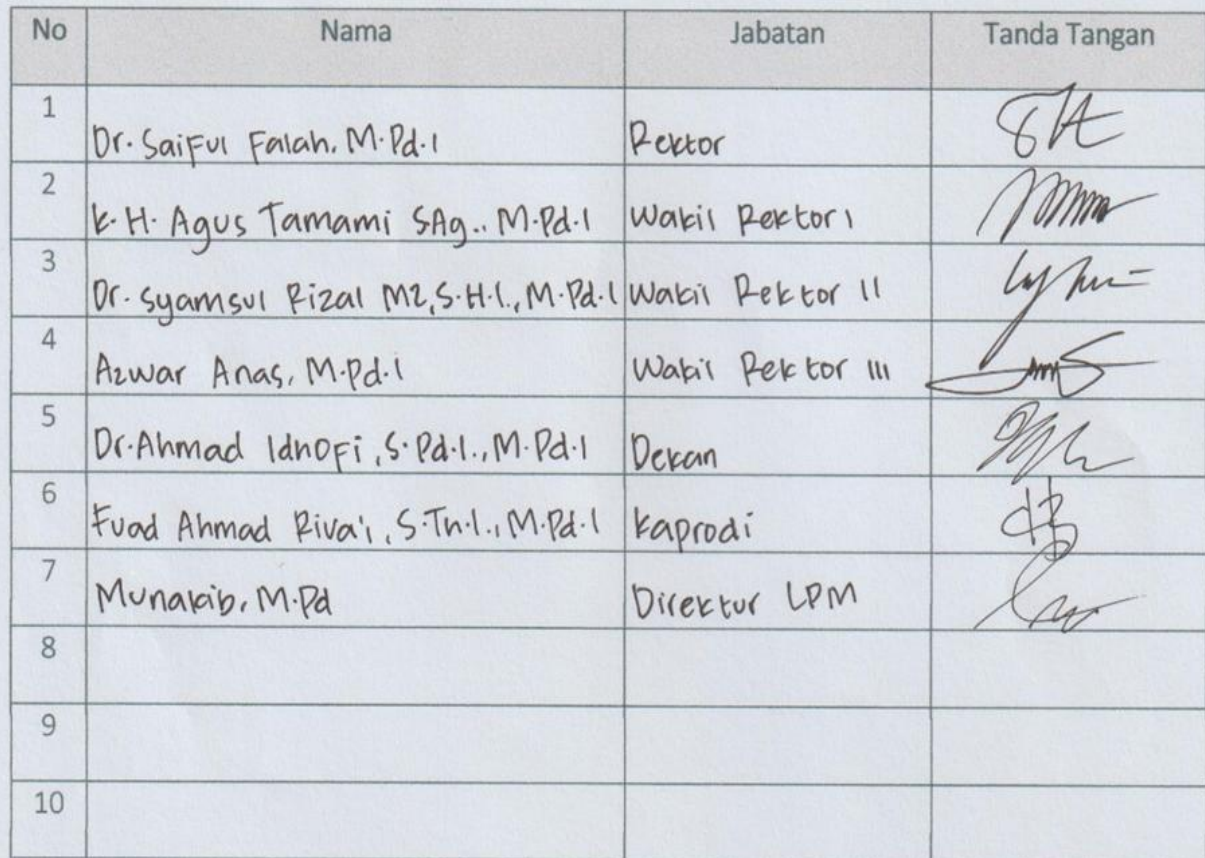 No Nama Jabatan Tanda Tangan
1 Dr. Saiful Falah, M.Pd.I Rektor
2 K.H. Agus Tamami SAg., M.Pd.I Wakil Rektor I
3 Dr. Syamsul Rizal MZ, S.H.I., M.Pd.I Wakil Rektor II
4 Azwar Anas, M.Pd.I Wakil Rektor III
5 Dr. Ahmad Idhofi, S.Pd.I., M.Pd.I Dekan
6 Fuad Ahmad Riva'i, S.Th.I., M.Pd.I Kaprodi
7 Munakib, M.Pd Direktur LPM
8
9
10